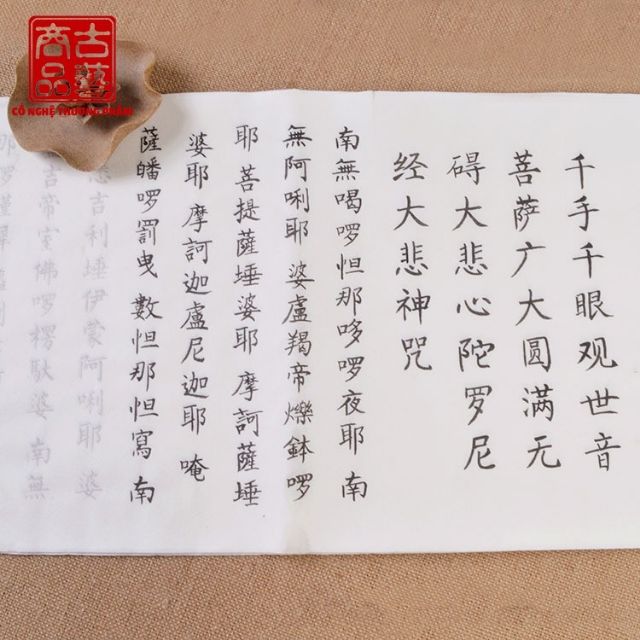 古藝
商品
CỔ NGHỆ THƯƠNG PHẨM
千手千眼观世音
菩萨广大圆满无
碍大悲心陀罗尼
经大悲神咒
南無喝啰怛那哆啰夜耶 南
無阿唎耶 婆盧羯帝爍鉢啰
耶 菩提薩埵婆耶 摩訶薩埵
婆耶 摩訶迦盧尼迦耶 唵
薩皤啰罰曳 數怛那怛寫 南
吉利埵伊蒙阿唎耶 婆
吉帝室佛啰楞馱婆 南無
那啰謹墀